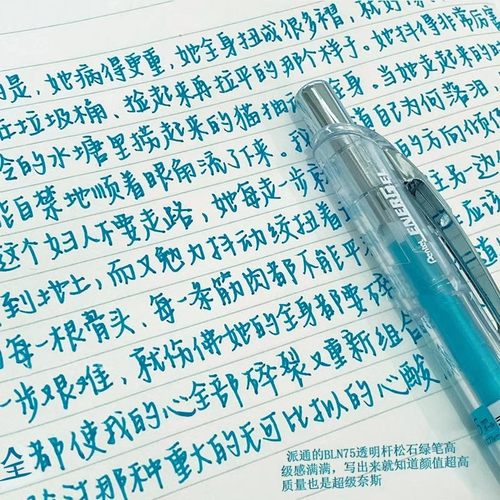 的是，她病得更重，她全身扭成很多褶，就好
在垃圾桶、捡起来再拉平的那个样子。她抖得非常厉害
冷的水塘里捞起来的猫抽
全身。当她走起来的
能自禁地顺着眼角流了下来。我
道自己为何落泪
这个妇人不要走路，她每走一步
的方向倾
到地上，而又勉力抖动绞扭着
每一根骨头、每一条筋肉都不能平
一步艰难，就仿佛她的全身都要碎
全都使我的心全部碎裂又重新组合
那种重大的无可比拟的心酸
Pentel ENERGEL
派通的BLN75透明杆松石绿笔高
级感满满，写出来就知道颜值超高
质量也是超级奈斯